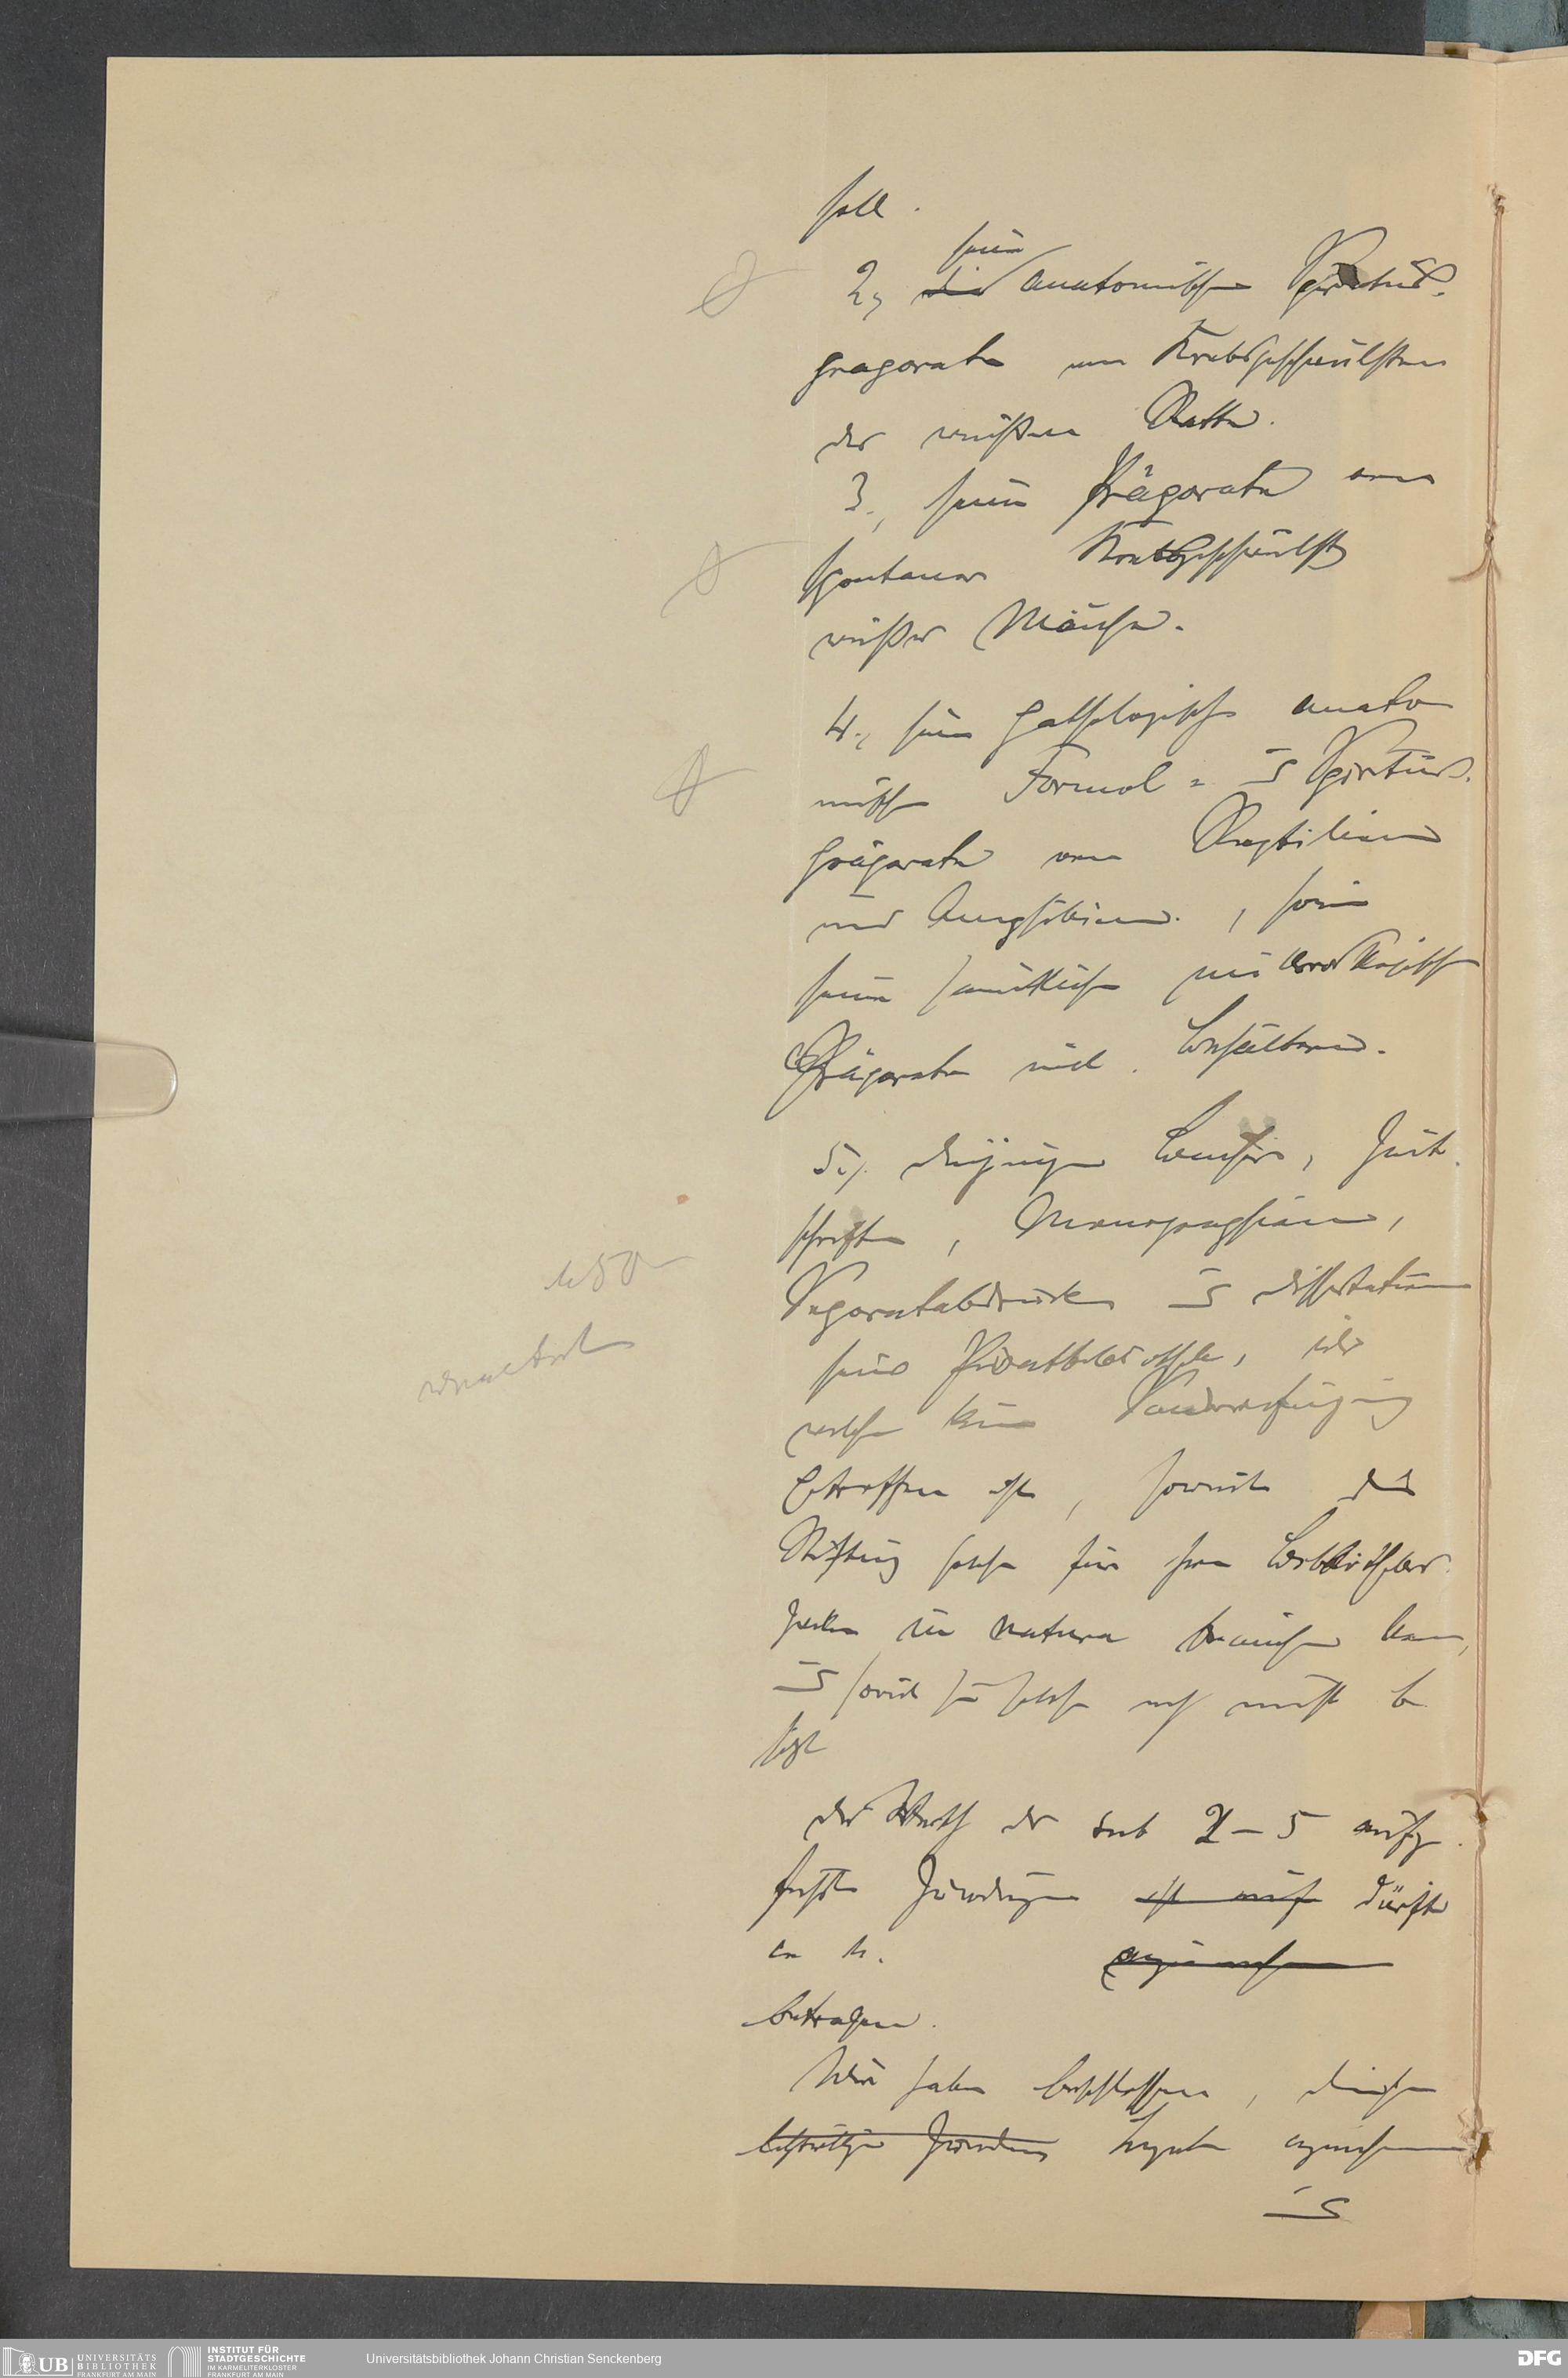 soll.
seine
2, die anatomischen Spiritus-
präparate von Krebsgeschwülsten
der weißen Ratte.
3., seine Präparate von
spontanen Krebsgeschwülsten
weißer Mäuse.
4., seine pathologisch anato
mischen Formol- u Spiritus-
präparate von Reptilien
und Amphibien, sowie
seine sämtlichen mikroskopischen
Präparate incl. Behältern.
5., diejenigen Bücher, Zeit-
schriften, Monographien,
Separatabdrücke u Dissertationen
seiner Privatbibliothek, über
welche keine Sonderverfügung
getroffen ist, soweit die
Stiftung solche für ihre
Zwecke in natura brauchen kann,
u soweit sie solche noch nicht be
sitzt
der Werth der sub 2-5 aufge-
führten Zuwendungen ist auf dürfte
ca M. anzunehmen
betragen.
Wir haben beschlossen, dieses
letztwillige Zuwendung Legat anzunehmen
u
UB UNIVERSITÄTS
BIBLIOTHEK
FRANKFURT AM MAIN
INSTITUT FÜR
STADTGESCHICHTE
IM KARMELITERKLOSTER
FRANKFURT AM MAIN
Universitätsbibliothek Johann Christian Senckenberg
DFG